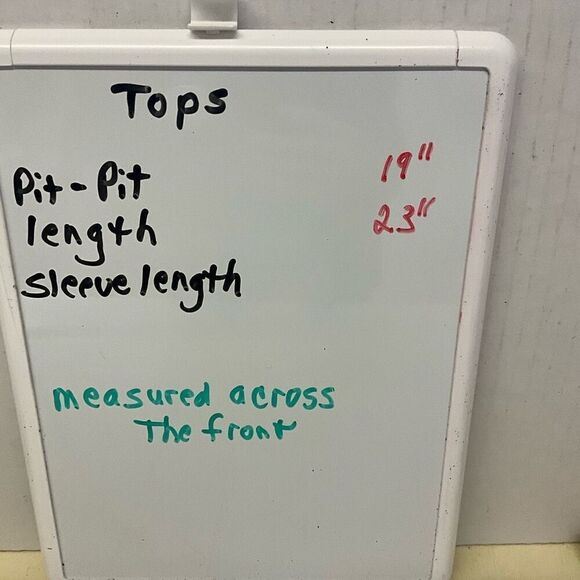 Tops
Pit-Pit 19"
length 23"
sleeve length
measured across
The front